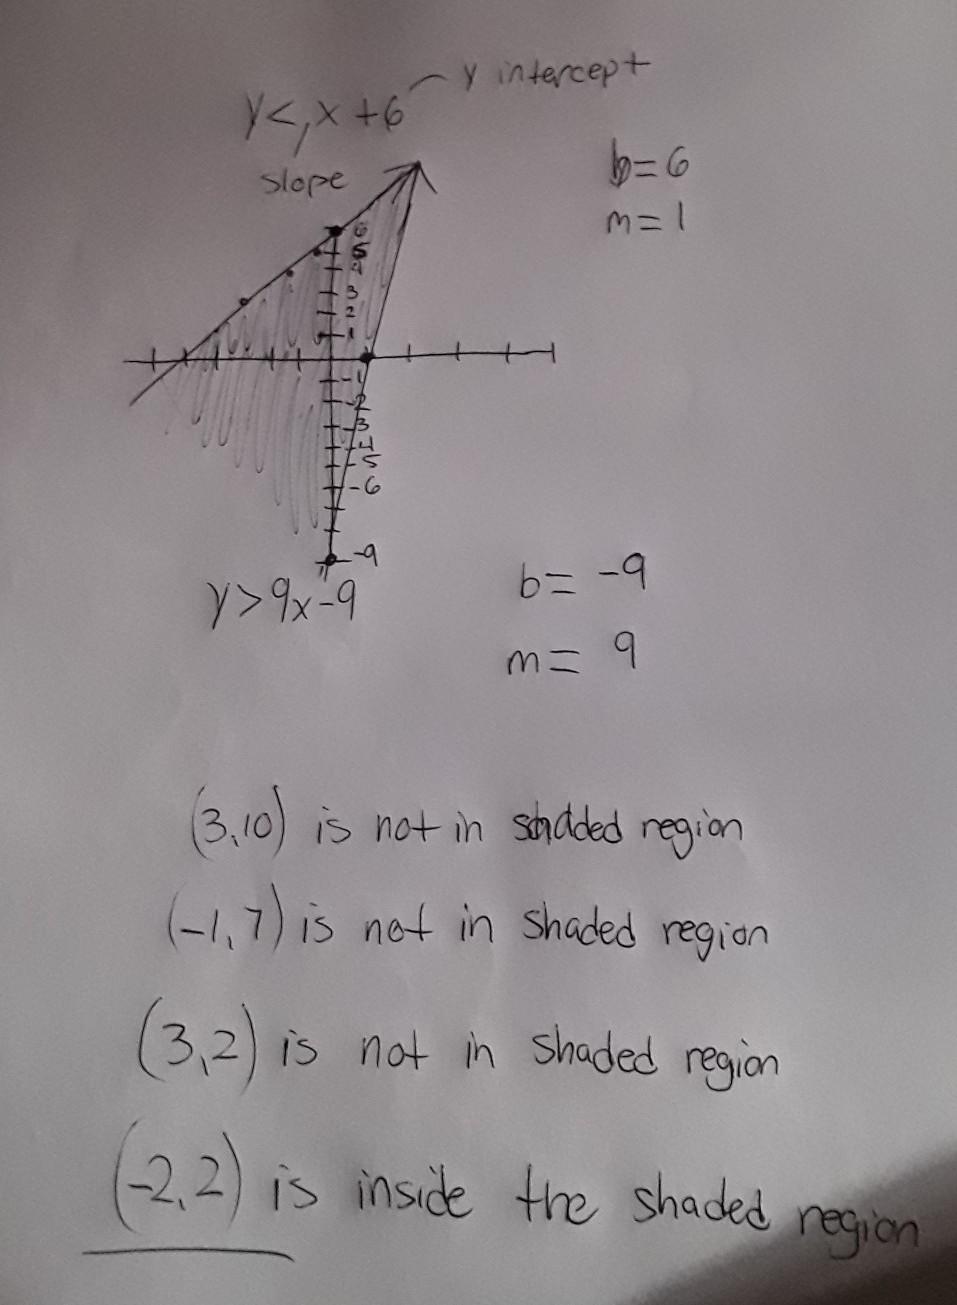 y intercept
y < 1x + 6
slope
b = 6
m = 1
6
5
4
3
2
1
-1
-2
-3
-4
-5
-6
-9
y > 9x - 9
b = -9
m = 9
(3,10) is not in shadded region
(-1,7) is not in shaded region
(3,2) is not in shaded region
(-2,2) is inside the shaded region